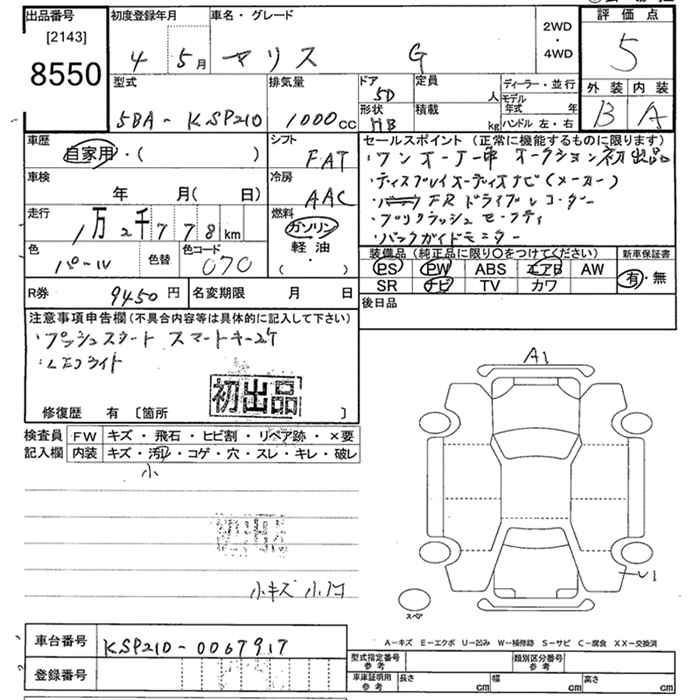 出品番号
[2143]
8550
初度登録年月
4 5月
車名・グレード
ヤリス G
2WD
・
4WD
評価点
5
外装 内装
B A
型式
5BA-KSP210
排気量
1000cc
ドア
5D
形状
HB
定員
人
積載
kg
ディーラー・並行
モデル年式 年
ハンドル 左・右
車歴
自家用・( )
シフト
FAT
車検
年 月( 日)
冷房
AAC
走行
1万2千778km
燃料
ガソリン
軽油
・( )
色
パール
色替
色コード
070
R券
9450円
名変期限 月 日
セールスポイント(正常に機能するものに限ります)
・ワンオーナー車 オークション初出品
・ディスプレイオーディオナビ(メーカー)
・FRドライブレコーダー
・プリクラッシュセーフティ
・バックガイドモニター
装備品(純正品に限り○をつけてください)
PS PW ABS エアB AW
SR ナビ TV カワ
新車保証書
有・無
後日品
注意事項申告欄(不具合内容等は具体的に記入して下さい)
・プッシュスタート スマートキー2ケ
・LEDライト
初出品
修復歴 有 〔箇所 〕
検査員
記入欄
FW キズ・飛石・ヒビ割・リペア跡・×要
内装 キズ・汚れ・コゲ・穴・スレ・キレ・破レ
小
小キズ 小凹
A1
U1
スペア
A-キズ E-エクボ U-凹み W-補修跡 S-サビ C-腐食 XX-交換済
車台番号
KSP210-0067917
登録番号
型式指定番号
参考
類別区分番号
参考
車庫証明用
参考
長さ cm
幅 cm
高さ cm